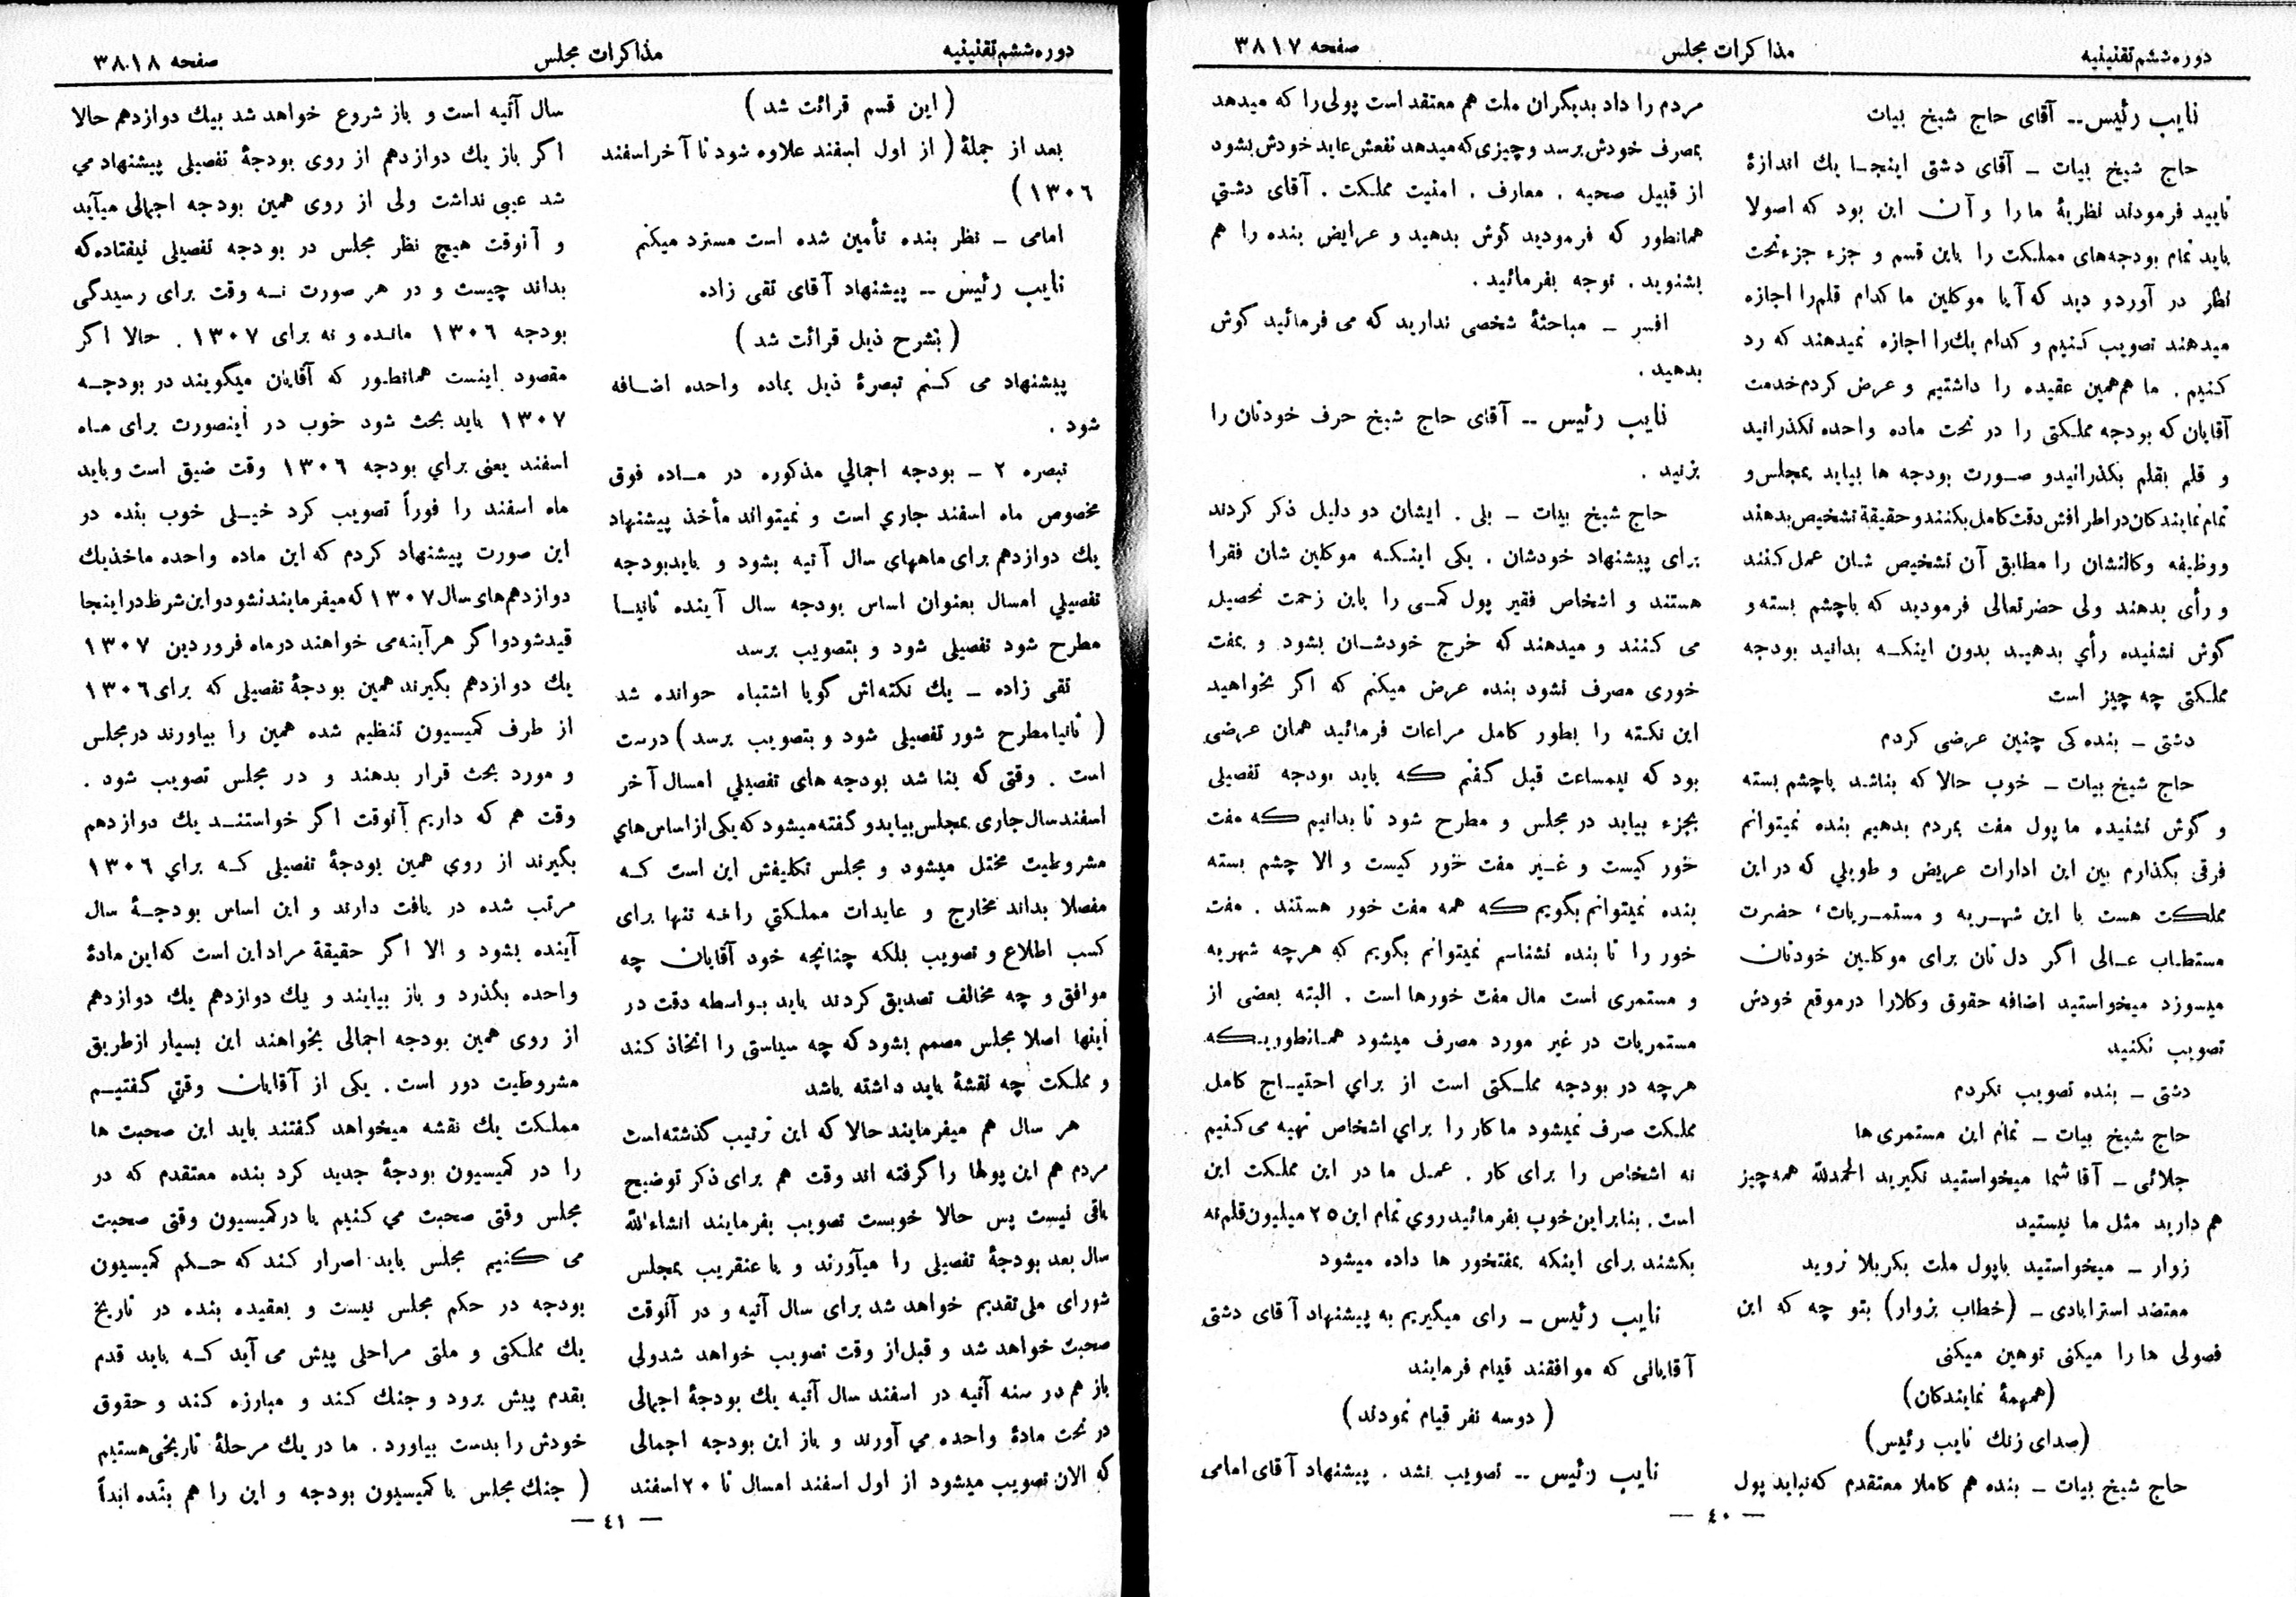 دوره ششم تقنینیه
مذاکرات مجلس
صفحه ۳۸۱۷
نایب رئیس-- آقای حاج شیخ بیات
حاج شیخ بیات - آقای دشتی اینجا یك اندازۀ
تایید فرمودند نظریۀ ما را و آن این بود که اصولا
باید تمام بودجه‌های مملکت را باین قسم و جزء جزء تحت
نظر در آورد و دید که آیا موکلین ما کدام قلم را اجازه
میدهند تصویب کنیم و کدام یك را اجازه نمیدهند که رد
کنیم . ما هم همین عقیده را داشتیم و عرض کردم خدمت
آقایان که بودجه مملکتی را در تحت ماده واحده نگذرانید
و قلم بقلم بگذرانید و صورت بودجه ها بیاید بمجلس و
تمام نمایندکان در اطرافش دقت کامل بکنند و حقیقة تشخیص بدهند
و وظیفه وکالتشان را مطابق آن تشخیص شان عمل کنند
و رأی بدهند ولی حضرتعالی فرمودید که باچشم بسته و
گوش نشنیده رأي بدهید بدون اینکه بدانید بودجه
مملکتی چه چیز است
دشتی - بنده کی چنین عرضی کردم
حاج شیخ بیات - خوب حالا که بناشد باچشم بسته
و گوش نشنیده ما پول مفت بمردم بدهیم بنده نمیتوانم
فرقی بگذارم بین این ادارات عریض و طویلي که در این
مملکت هست با این شهریه و مستمریات، حضرت
مستطاب عالی اگر دل تان برای موکلین خودتان
میسوزد میخواستید اضافه حقوق وکلا را در موقع خودش
تصویب نکنید
دشتی - بنده تصویب نکردم
حاج شیخ بیات - تمام این مستمری ها
جلائی - آقا شما میخواستید نگیرید الحمدلله همه چیز
هم دارید مثل ما نیستید
زوار - میخواستید باپول ملت بکربلا نروید
معتضد استرابادی - (خطاب بزوار) بتو چه که این
فضولی ها را میکنی توهین میکنی
(همهمۀ نمایندکان)
(صدای زنك نایب رئیس)
حاج شیخ بیات - بنده هم کاملا معتقدم که نباید پول
مردم را داد بدیگران ملت هم معتقد است پولی را که میدهد
بمصرف خودش برسد و چیزی که میدهد نفعش عاید خودش بشود
از قبیل صحیه . معارف . امنیت مملکت . آقای دشتي
همانطور که فرمودید گوش بدهید و عرایض بنده را هم
بشنوید . توجه بفرمائید .
افسر - مباحثۀ شخصی ندارید که می فرمائید گوش
بدهید .
نایب رئیس -- آقای حاج شیخ حرف خودتان را
بزنید .
حاج شیخ بیات - بلی . ایشان دو دلیل ذکر کردند
برای پیشنهاد خودشان . یکی اینکه موکلین شان فقرا
هستند و اشخاص فقیر پول کمی را باین زحمت تحصیل
می کنند و میدهند که خرج خودشان بشود و بمفت
خوری مصرف نشود بنده عرض میکنم که اگر بخواهید
این نکته را بطور کامل مراعات فرمائید همان عرضی
بود که نیمساعت قبل گفتم که باید بودجه تفصیلی
بجزء بیاید در مجلس و مطرح شود تا بدانیم که مفت
خور کیست و غیر مفت خور کیست و الا چشم بسته
بنده نمیتوانم بگویم که همه مفت خور هستند . مفت
خور را تا بنده نشناسم نمیتوانم بگویم که هرچه شهریه
و مستمری است مال مفت خورها است . البته بعضی از
مستمریات در غیر مورد مصرف میشود همانطوریکه
هرچه در بودجه مملکتی است از براي احتیاج کامل
مملکت صرف نمیشود ما کار را براي اشخاص تهیه می کنیم
نه اشخاص را برای کار . عمل ما در این مملکت این
است . بنابراین خوب بفرمائید روي تمام این ۲۵ میلیون قلم نه
بکشند برای اینکه بمفتخور ها داده میشود
نایب رئیس - رای میگیریم به پیشنهاد آقای دشتی
آقایانی که موافقند قیام فرمایند
( دوسه نفر قیام نمودند )
نایب رئیس -- تصویب نشد . پیشنهاد آقای امامی
— ٤٠ —
دوره ششم تقنینیه
مذاکرات مجلس
صفحه ۳۸۱۸
( این قسم قرائت شد )
بعد از جملۀ ( از اول اسفند علاوه شود تا آخر اسفند
۱۳۰٦ )
امامی - نظر بنده تأمین شده است مسترد میکنم
نایب رئیس -- پیشنهاد آقای تقی زاده
( بشرح ذیل قرائت شد )
پیشنهاد می کنم تبصرۀ ذیل بماده واحده اضافه
شود .
تبصره ۲ - بودجه اجمالي مذکوره در ماده فوق
مخصوص ماه اسفند جاري است و نمیتواند مأخذ پیشنهاد
یك دوازدهم برای ماههای سال آتیه بشود و باید بودجه
تفصیلي امسال بعنوان اساس بودجه سال آینده ثانیا
مطرح شود تفصیلی شود و بتصویب برسد
تقی زاده - یك نکته‌اش گویا اشتباه خوانده شد
( ثانیا مطرح شور تفصیلی شود و بتصویب برسد ) درست
است . وقتی که بنا شد بودجه های تفصیلي امسال آخر
اسفند سال جاری بمجلس بیاید و گفته میشود که یکی از اساس‌هاي
مشروطیت مختل میشود و مجلس تکلیفش این است که
مفصلا بداند مخارج و عایدات مملکتي را نه تنها برای
کسب اطلاع و تصویب بلکه چنانچه خود آقایان چه
موافق و چه مخالف تصدیق کردند باید بواسطه دقت در
اینها اصلا مجلس مصمم بشود که چه سیاستی را اتخاذ کند
و مملکت چه نقشۀ باید داشته باشد
هر سال هم میفرمایند حالا که این ترتیب گذشته است
مردم هم این پولها را گرفته اند وقت هم برای ذکر توضیح
باقی نیست پس حالا خوبست تصویب بفرمایند انشاءالله
سال بعد بودجۀ تفصیلی را میآورند و یا عنقریب بمجلس
شورای ملی تقدیم خواهد شد برای سال آتیه و در آنوقت
صحبت خواهد شد و قبل از وقت تصویب خواهد شد ولی
باز هم در سنه آتیه در اسفند سال آتیه یك بودجۀ اجمالی
در تحت مادۀ واحده مي آورند و باز این بودجه اجمالی
که الان تصویب میشود از اول اسفند امسال تا ۲۰ اسفند
سال آتیه است و باز شروع خواهد شد بیك دوازدهم حالا
اگر باز یك دوازدهم از روی بودجۀ تفصیلی پیشنهاد مي
شد عیبی نداشت ولی از روی همین بودجه اجمالی میآید
و آنوقت هیچ نظر مجلس در بودجه تفصیلی نیفتاده که
بداند چیست و در هر صورت نه وقت برای رسیدگی
بودجه ۱۳۰٦ مانده و نه برای ۱۳۰۷ . حالا اگر
مقصود اینست همانطور که آقایان میگویند در بودجه
۱۳۰۷ باید بحث شود خوب در اینصورت برای ماه
اسفند یعنی براي بودجه ۱۳۰٦ وقت ضیق است و باید
ماه اسفند را فوراً تصویب کرد خیلی خوب بنده در
این صورت پیشنهاد کردم که این ماده واحده ماخذ یك
دوازدهم‌های سال ۱۳۰۷ که میفرمایند نشود و این شرط در اینجا
قید شود و اگر هر آینه می خواهند در ماه فروردین ۱۳۰۷
یك دوازدهم بگیرند همین بودجۀ تفصیلی که برای ۱۳۰٦
از طرف کمیسیون تنظیم شده همین را بیاورند در مجلس
و مورد بحث قرار بدهند و در مجلس تصویب شود .
وقت هم که داریم آنوقت اگر خواستند یك دوازدهم
بگیرند از روي همین بودجۀ تفصیلی که براي ۱۳۰٦
مرتب شده در یافت دارند و این اساس بودجۀ سال
آینده بشود و الا اگر حقیقة مراد این است که این مادۀ
واحده بگذرد و باز بیایند و یك دوازدهم یك دوازدهم
از روی همین بودجه اجمالی بخواهند این بسیار از طریق
مشروطیت دور است . یکی از آقایان وقتي گفتیم
مملکت یك نقشه میخواهد گفتند باید این صحبت ها
را در کمیسیون بودجۀ جدید کرد بنده معتقدم که در
مجلس وقتی صحبت مي کنیم یا در کمیسیون وقتی صحبت
می کنیم مجلس باید اصرار کند که حکم کمیسیون
بودجه در حکم مجلس نیست و بعقیده بنده در تاریخ
یك مملکتی و ملتی مراحلی پیش می آید که باید قدم
بقدم پیش برود و جنك کند و مبارزه کند و حقوق
خودش را بدست بیاورد . ما در یك مرحلۀ تاریخی هستیم
( جنك مجلس با کمیسیون بودجه و این را هم بنده ابداً
— ٤١ —